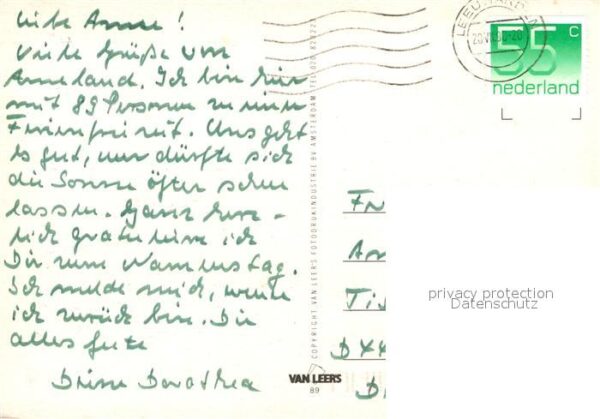 Liebe Anne!
Viele Grüße von
Ameland. Ich bin hier
mit 89 Personen zu einer
Ferienfreizeit. Uns geht
es gut, nur dürfte sich
die Sonne öfter sehen
lassen. Ganz herz-
lich gratuliere ich
Dir zum Namenstag.
Ich melde mich, wenn
ich zurück bin. Dir
alles Gute
Deine Dorothea
COPYRIGHT VAN LEER'S FOTODRUKINDUSTRIE BV AMSTERDAM TEL. 020
VAN LEER'S
89
55 C
nederland
Fr
An
Tis
D44
D
privacy protection
Datenschutz